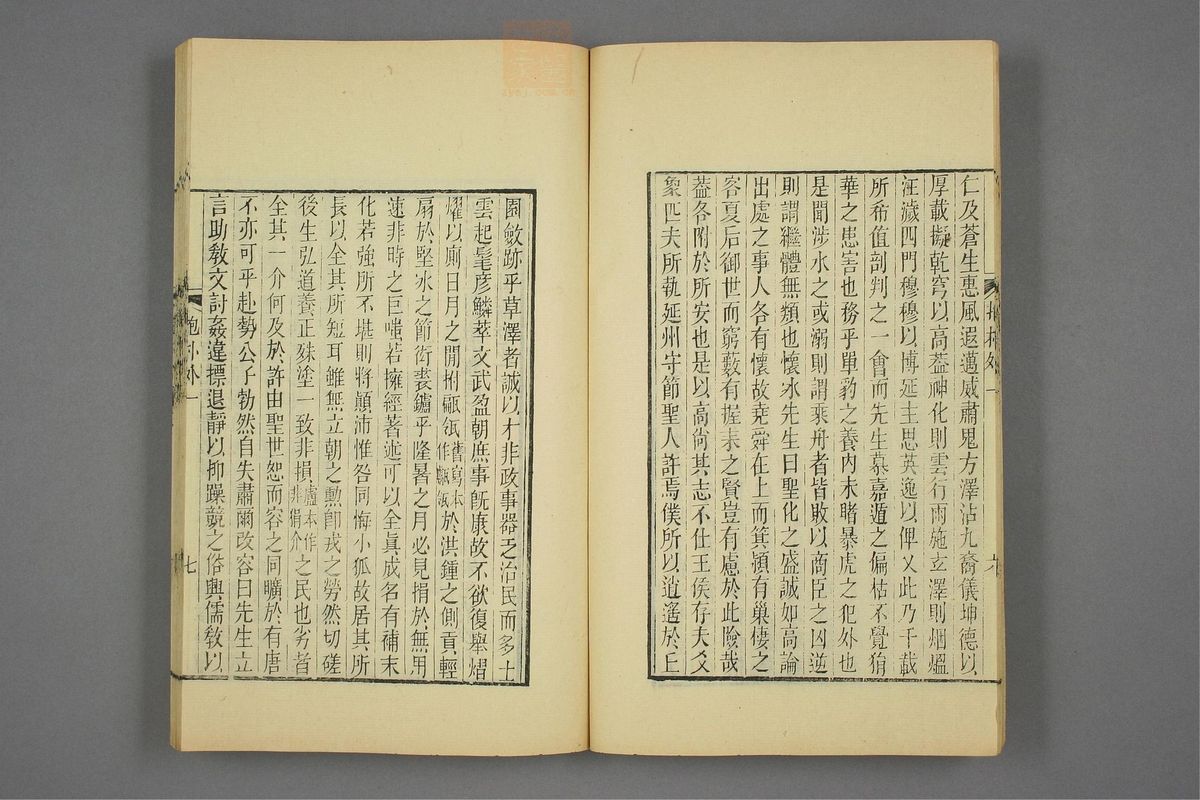 仁及蒼生惠風遐邁威肅鬼方澤沾九裔儀坤德以
厚載擬乾穹以高蓋神化則雲行雨施玄澤則烟熅
汪濊四門穆穆以博延主思英逸以俾乂此乃千載
所希值剖判之一會而先生慕嘉遁之偏枯不覺狷
華之患害也務乎單豹之養內未睹暴虎之犯外也
是聞涉水之或溺則謂乘舟者皆敗以商臣之凶逆
則謂繼體無類也懷冰先生曰聖化之盛誠如高論
出處之事人各有懷故堯舜在上而箕潁有巢棲之
客夏后御世而窮藪有握耒之賢豈有慮於此險哉
蓋各附於所安也是以高尚其志不仕王侯存夫爻
象匹夫所執延州守節聖人許焉僕所以逍遙於丘
園斂跡乎草澤者誠以才非政事器乏治民而多士
雲起髦彥鱗萃文武盈朝庶事旣康故不欲復舉熠
燿以廁日月之閒拊甂瓴舊寫本作甑瓴於洪鍾之側貢輕
扇於堅冰之節衒裘鑪乎隆暑之月必見捐於無用
速非時之巨嗤若擁經著述可以全眞成名有補末
化若強所不堪則將顛沛惟咎同悔小狐故居其所
長以全其所短耳雖無立朝之勳卽戎之勞然切磋
後生弘道養正殊塗一致非損盧本作非狷介之民也劣者
全其一介何及於許由聖世恕而容之同曠於有唐
不亦可乎赴勢公子勃然自失肅爾改容曰先生立
言助敎文討姦違摽退靜以抑躁競之俗興儒敎以
抱朴外一
七